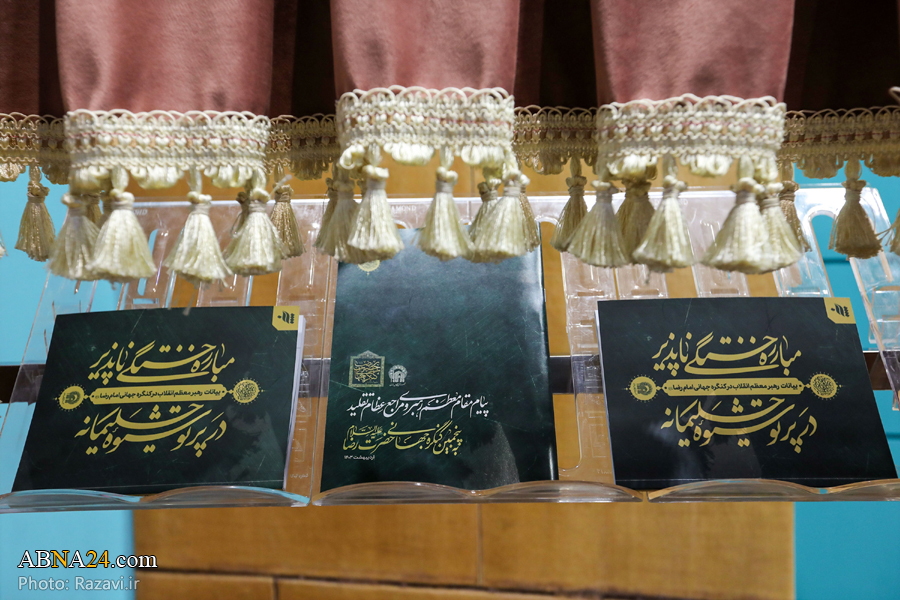 مبارزه خستگی‌ناپذیر
بیانات رهبر معظم انقلاب در کنگره جهانی امام رضا
در پرتو شیوه حکیمانه
پیام مقام معظم رهبری و مراجع عظام تقلید
پنجمین کنگره جهانی حضرت رضا علیه السلام
اردیبهشت ۱۴۰۳
مبارزه خستگی‌ناپذیر
بیانات رهبر معظم انقلاب در کنگره جهانی امام رضا
در پرتو شیوه حکیمانه
ABNA24.com
Photo: Razavi.ir